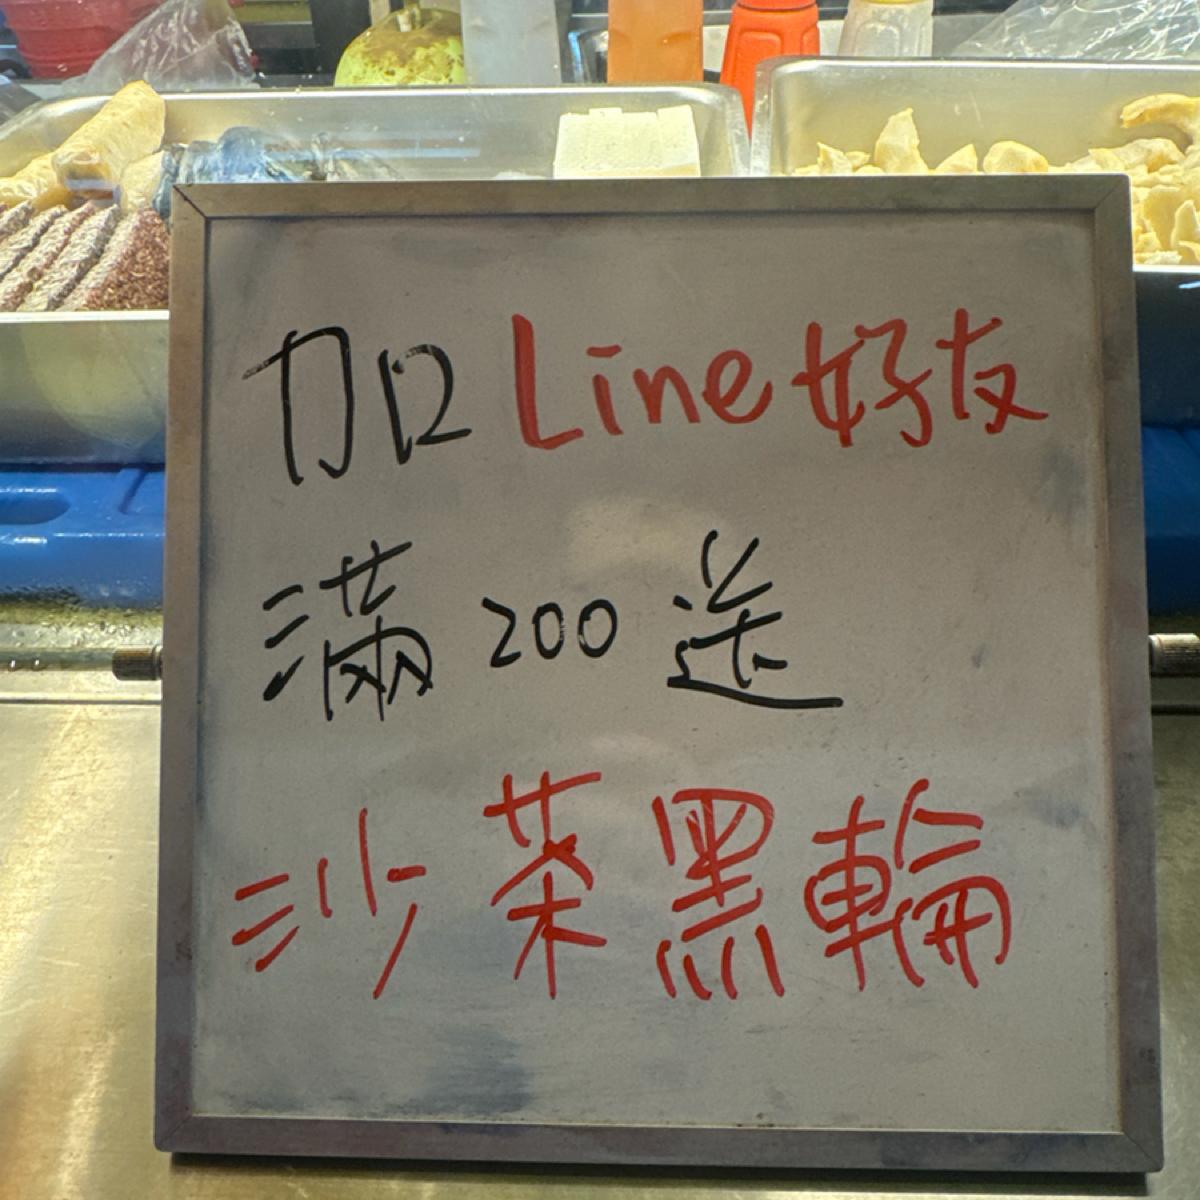 加Line好友
滿200送
沙茶黑輪